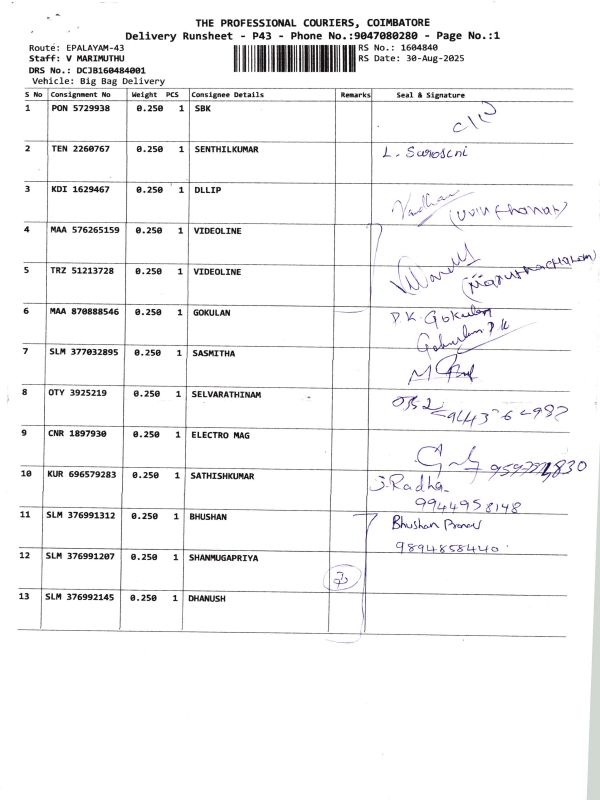 THE PROFESSIONAL COURIERS, COIMBATORE
Delivery Runsheet - P43 - Phone No.:9047080280 - Page No.:1
Route: EPALAYAM-43 RS No.: 1604840
Staff: V MARIMUTHU RS Date: 30-Aug-2025
DRS No.: DCJB160484001
Vehicle: Big Bag Delivery
S No Consignment No Weight PCS Consignee Details Remarks Seal & Signature
1 PON 5729938 0.250 1 SBK
2 TEN 2260767 0.250 1 SENTHILKUMAR L. Saroseni
3 KDI 1629467 0.250 1 DLLIP
4 MAA 576265159 0.250 1 VIDEOLINE
5 TRZ 51213728 0.250 1 VIDEOLINE
6 MAA 870888546 0.250 1 GOKULAN P.K. Gokulan
Gokulan P.K
7 SLM 377032895 0.250 1 SASMITHA
8 OTY 3925219 0.250 1 SELVARATHINAM
9 CNR 1897930 0.250 1 ELECTRO MAG
10 KUR 696579283 0.250 1 SATHISHKUMAR J. Radha
9944958148
11 SLM 376991312 0.250 1 BHUSHAN Bhushan
9894858440
12 SLM 376991207 0.250 1 SHANMUGAPRIYA
13 SLM 376992145 0.250 1 DHANUSH